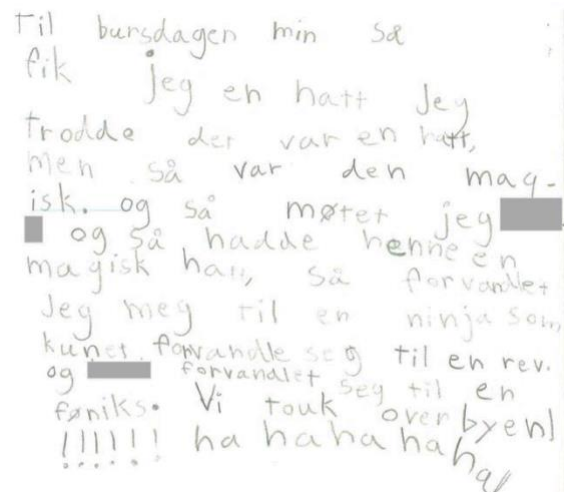 Til bursdagen min så
fik jeg en hatt Jeg
trodde det var en hatt,
men så var den mag-
isk. og så møtet jeg
og så hadde henne en
magisk hatt, så forvandlet
Jeg meg til en ninja som
kunet forvandle seg til en rev.
og forvandlet seg til en
føniks. Vi touk over byen!
!!!!!! ha ha ha ha
ha!